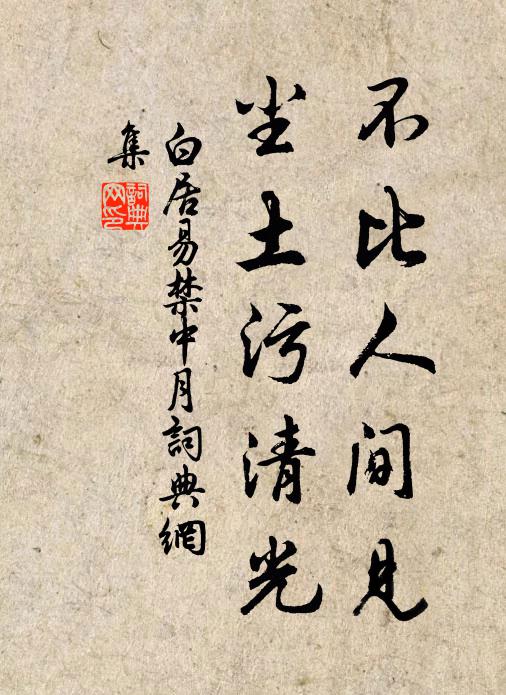 不比人间见
尘土污清光
白居易禁中月詞典網
集
詞典网印